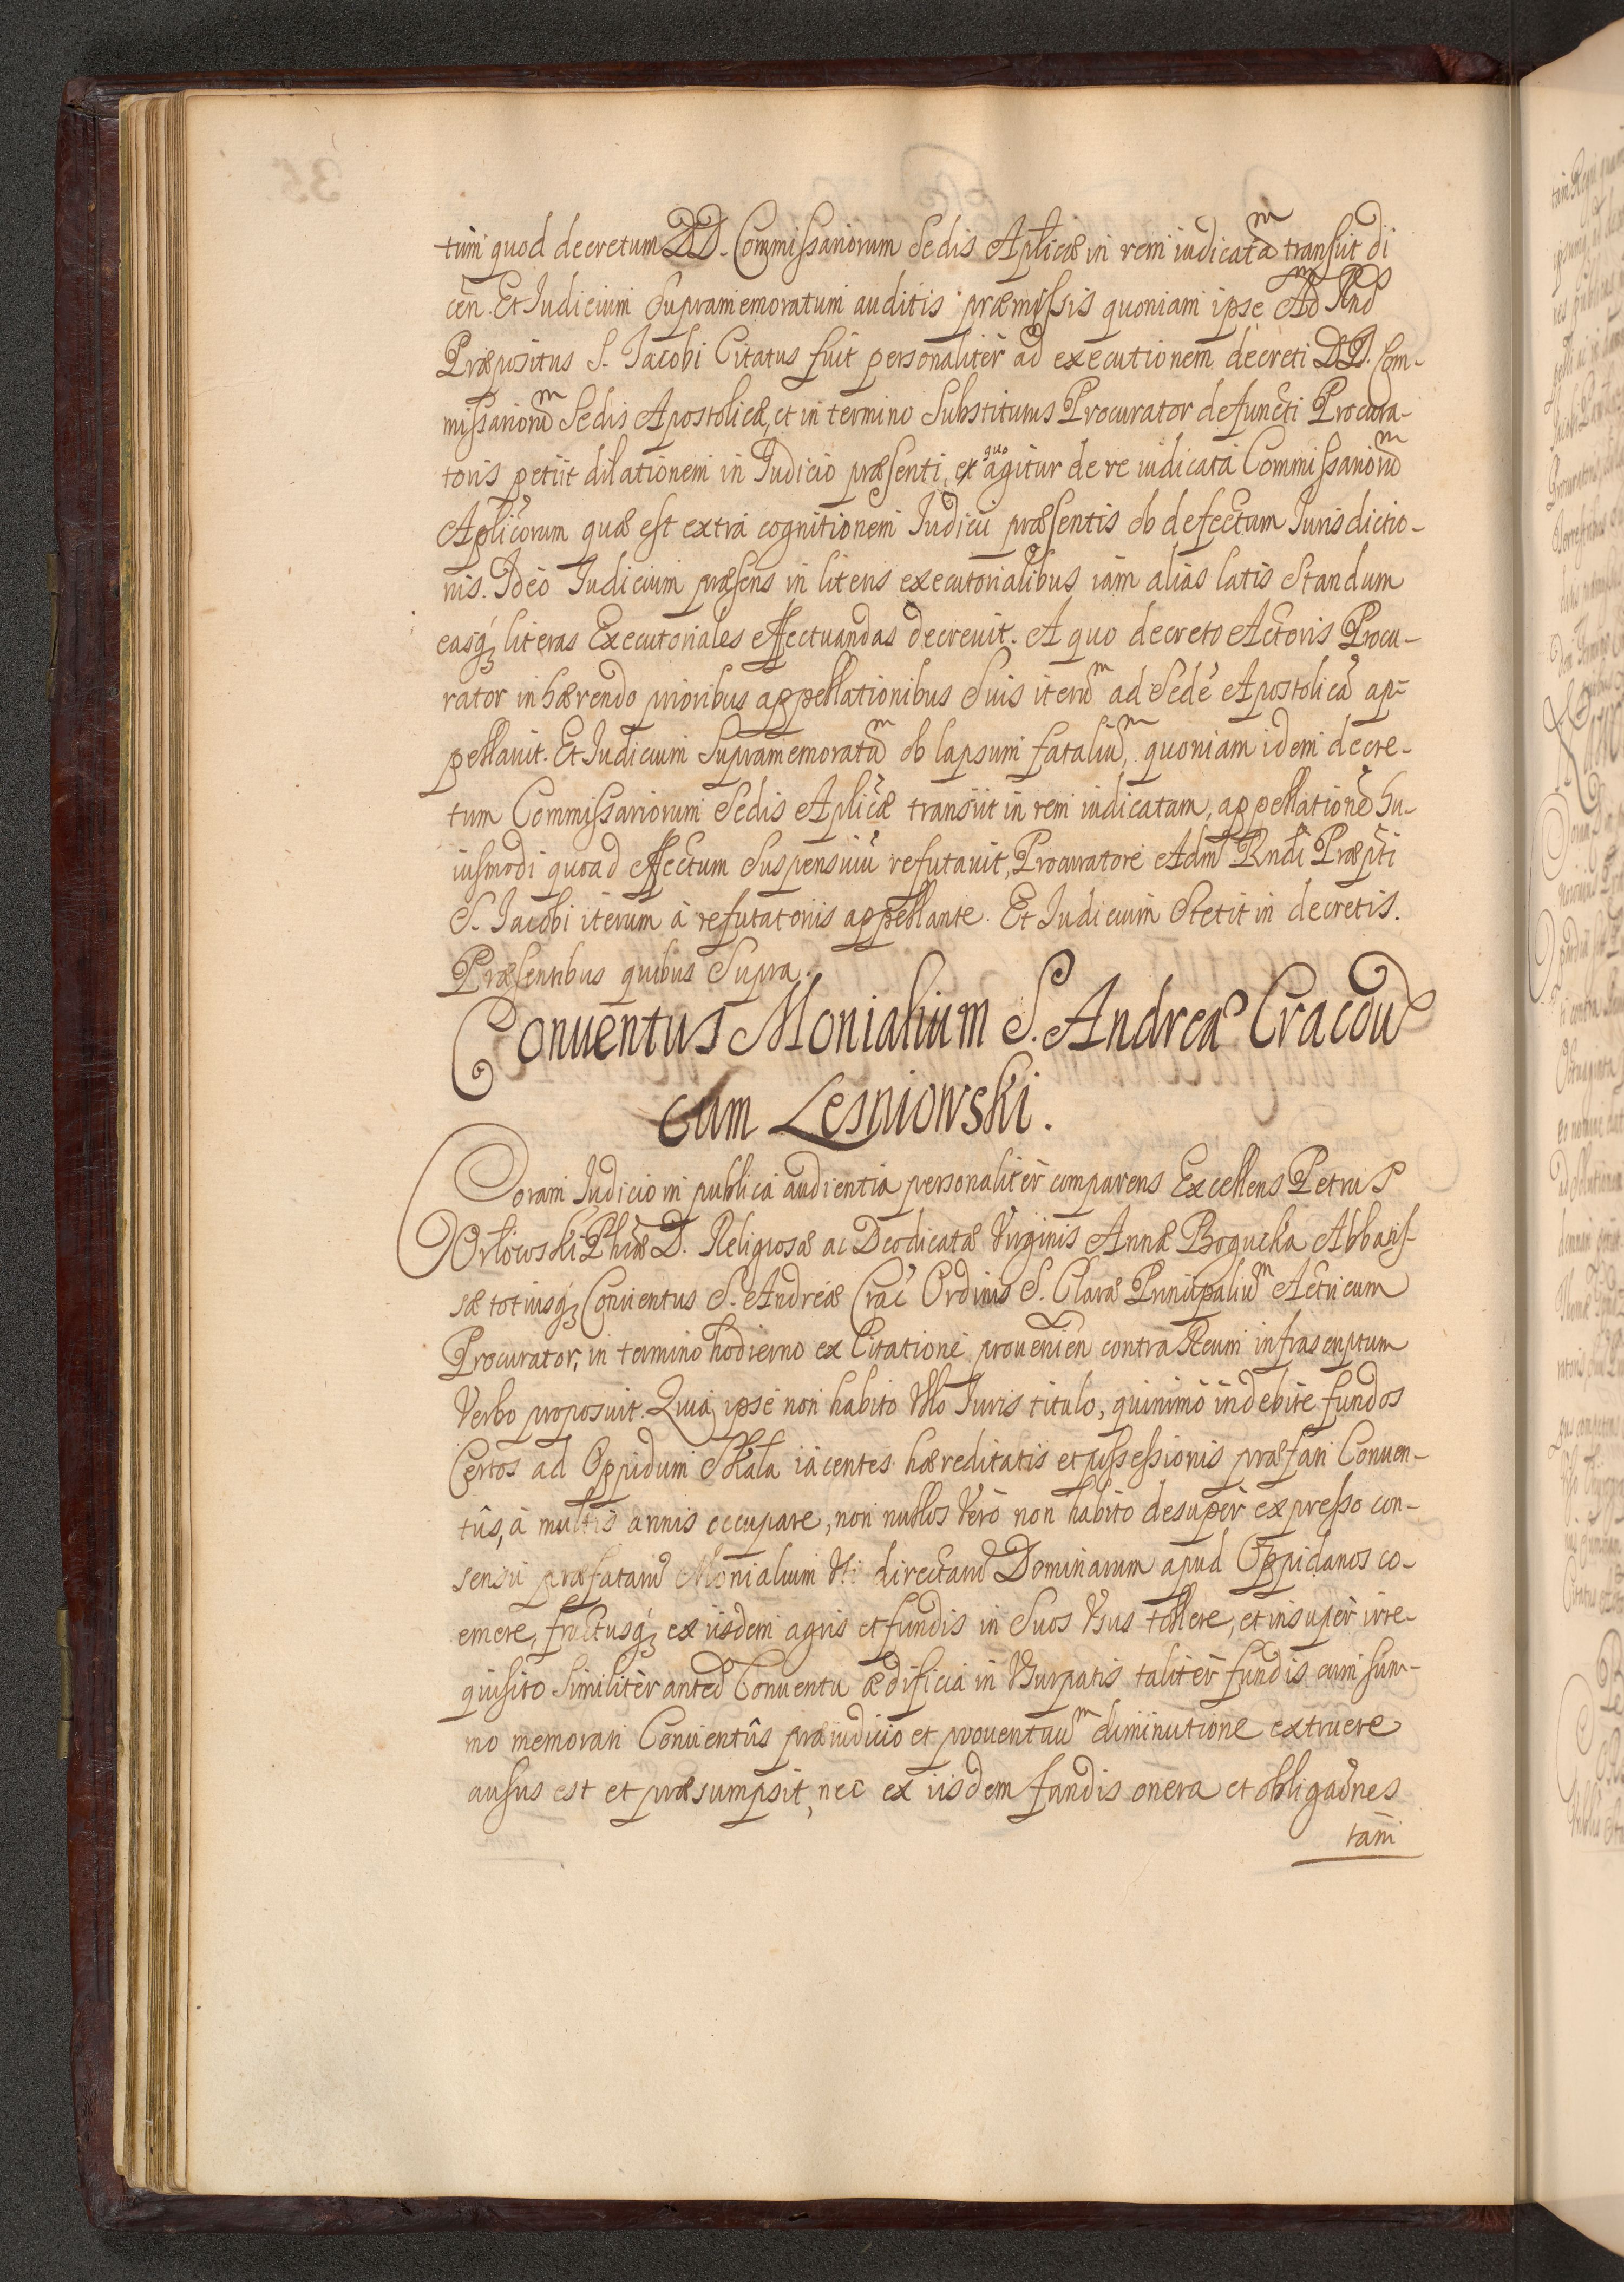 tum quod decretum DD. Commissariorum Sedis Aplicæ in rem iudicatam transiit di
cen. Et Iudicium Supramemoratum auditis præmissis quoniam ipse Adm Rnd
Præpositus S. Jacobi Citatus fuit personaliter ad executionem decreti DD. Com-
missariorum Sedis Apostolicæ, et in termino Substitutus Procurator defuncti Procura-
toris petiit dilationem in Judicio præsenti, ex quo agitur de re iudicata Commissariorum
Aplicorum quæ est extra cognitionem Judicii præsentis ob defectum Jurisdictio-
nis. Ideo Judicium præsens in literis executorialibus iam alias latis Standum
easq; literas Executoriales effectuandas decreuit. A quo decreto Actoris Procu-
rator inhærendo prioribus appellationibus Suis iterum ad Sede Apostolica ap-
pellauit. Et Judicium Supramemoratum ob lapsum fatalium, quoniam idem decre-
tum Commissariorum Sedis Aplicæ transiit in rem iudicatam, appellatione hu-
iusmodi quoad effectum Suspensiuu refutauit, Procuratore Adm Rndi Præpti
S. Jacobi iterum à refutatoriis appellante. Et Judicium Stetit in decretis.
Præsentibus quibus Supra.
Conuentus Monialium S. Andreæ Cracou
cum Lesniowski.
Coram Judicio in publica audientia personaliter comparens Excellens Petrus
Orłowski Phiæ D. Religiosæ ac Deodicatæ Virginis Annæ Bogucka Abbatis-
sæ totiusq; Conuentus S. Andreæ Crac Ordinis S. Claræ Principalium Actricum
Procurator, in termino hodierno ex Citatione prouenien contra Reum infrascriptum
Verbo proposuit. Quia ipse non habito Vllo Juris titulo, quinimo indebite fundos
Certos ad Oppidum Skała iacentes hæreditatis et possessionis præfati Conuen-
tûs, à multis annis occupare, non nullos Vero non habito desuper expresso con-
sensu præfataru Monialium Vti directaru Dominarum apud Oppidanos co-
emere, fructusq; ex iisdem agris et fundis in Suos Vsus tollere, et insuper irre-
quisito Similiter anted Conuentu ædificia in Vsurpatis taliter fundis cum sum-
mo memorati Conuentûs præiudicio et prouentuum diminutione extruere
ausus est et præsumpsit, nec ex iisdem fundis onera et obligaõnes
tam